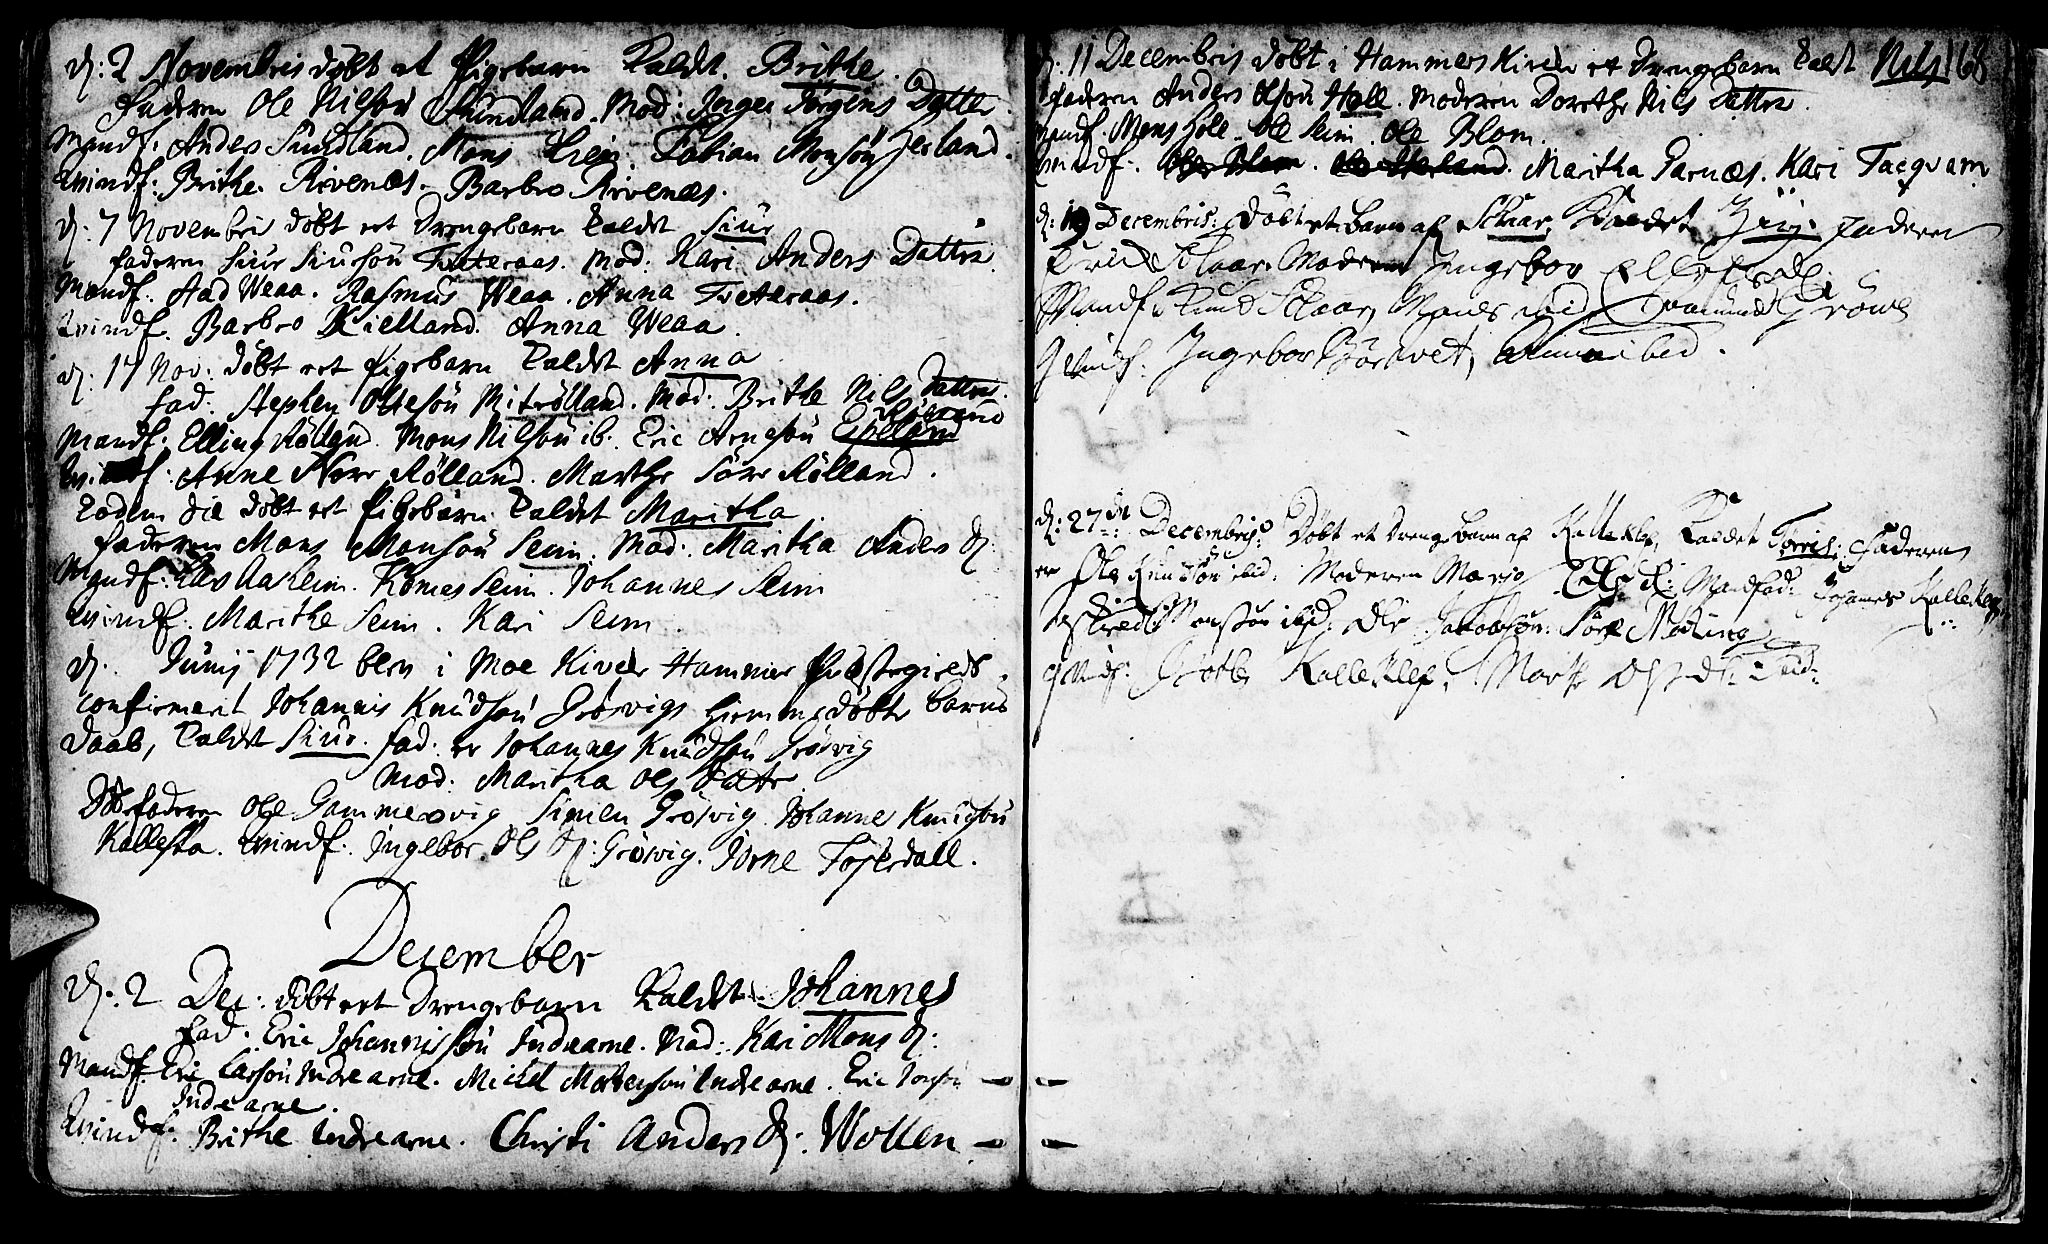 d: 2 Novembris døbt et Pigebarn kaldt. Brithe.
Faderen Ole Nilsøn Sundland. Mod: Inger Jørgens Datter
Mandf. Anders Sundland. Mons Lien. Fabian Monsøn Herland.
Qvindf: Brithe Rivenæs. Barbro Rivenæs.
d: 7 Novembris døbt et Drengebarn kaldt Siur
faderen Siur Siursøn Tveteraas. Mod: Kari Anders Datter
Mandf: Aad Weaa. Rasmus Weaa. Anna Tveteraas.
Qvindf. Barbro Kielland. Anna Weaa.
d: 17 Nov: døbt et Pigebarn kaldt Anna
fad: Stephen Ottesøn Mitrølland. Mod: Brithe Nils Datter.
Mandf: Elling Rølland. Mons Nilsøn ib: Eric Arnesøn Espeland
Qvindf: Anne Nere Rølland. Marthe Søre Rølland.
Eodem die døbt et Pigebarn kaldet Maritha
faderen Mons Monsøn Seim. Mod: Maritha Anders d:
Mandf: Lars Aasheim. Tomes Seim. Johannes Seim
Qvindf. Marithe Seim. Kari Seim
d. Junij 1732 blev i Moe Kirke Hammer Præstegield
confirmerit Johannis Knudsøn Grøsvigs hiemme døbte barns
daab, kaldet Siur. fad: er Johannes Knudsøn Grøsvig
Mod: Maritha Ols Datter
faderen Ole Gammersvig. Simen Grøsvig. Johanne Knudsøn
Kallesta. Qvindf. Ingebor Ols d: Grøsvig. Jorne Fosterdall.
December
d: 2 Dec: døbt et Drengebarn kaldt Johannes
fad: Eric Johannissøn Indrearne. Mod: Kari Mons d:
Mandf. Eric Larsøn Indrearne. Michel Mortensøn Indrearne. Eric
Indrearne.
Qvindf: Brithe Indrearne. Christi Anders d: Wollen
d: 11 Decembris døbt i Hammers Kirke et Drengebarn kaldt Nils 168
faderen Anders Olsøn Holl. Moderen Dorethe Nils Datter.
Mandf. Mons Hole. Ole Seim. Ole Blom.
Qvindf. Maritha Garnæs. Kari Tacqvam
d: 19 Decembris: Døbt et Barn af Skaar, Kaldet Faderen
Eric Skaar. Moderen Ingebor
Mandf: Knud Skaar, Mons ibid,
Qvindf: Ingebor ibid.
d: 27de Decembris: Døbt et Drengebarn af Kalleklef, Kaldet Torris: Faderen
er Ole Knudsøn ibid, Moderen Marjo d: Mandfad: Johannes Kalleklef
ibid: Ole Jacobsøn: Søre
Qvindf: Kalleklef, d: ibid: